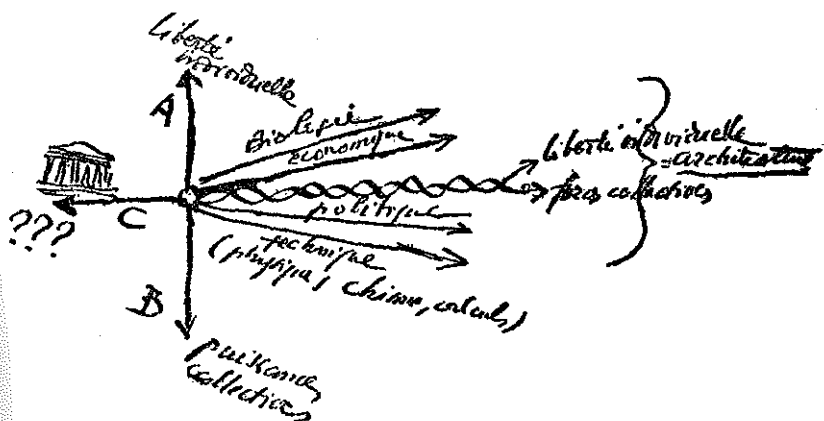 liberté
individuelle
A
Biologie
économique
liberté individuelle
= architecture
forces collectives
politique
C
???
technique
(physique, chimie, calculs)
B
puissances
collectives